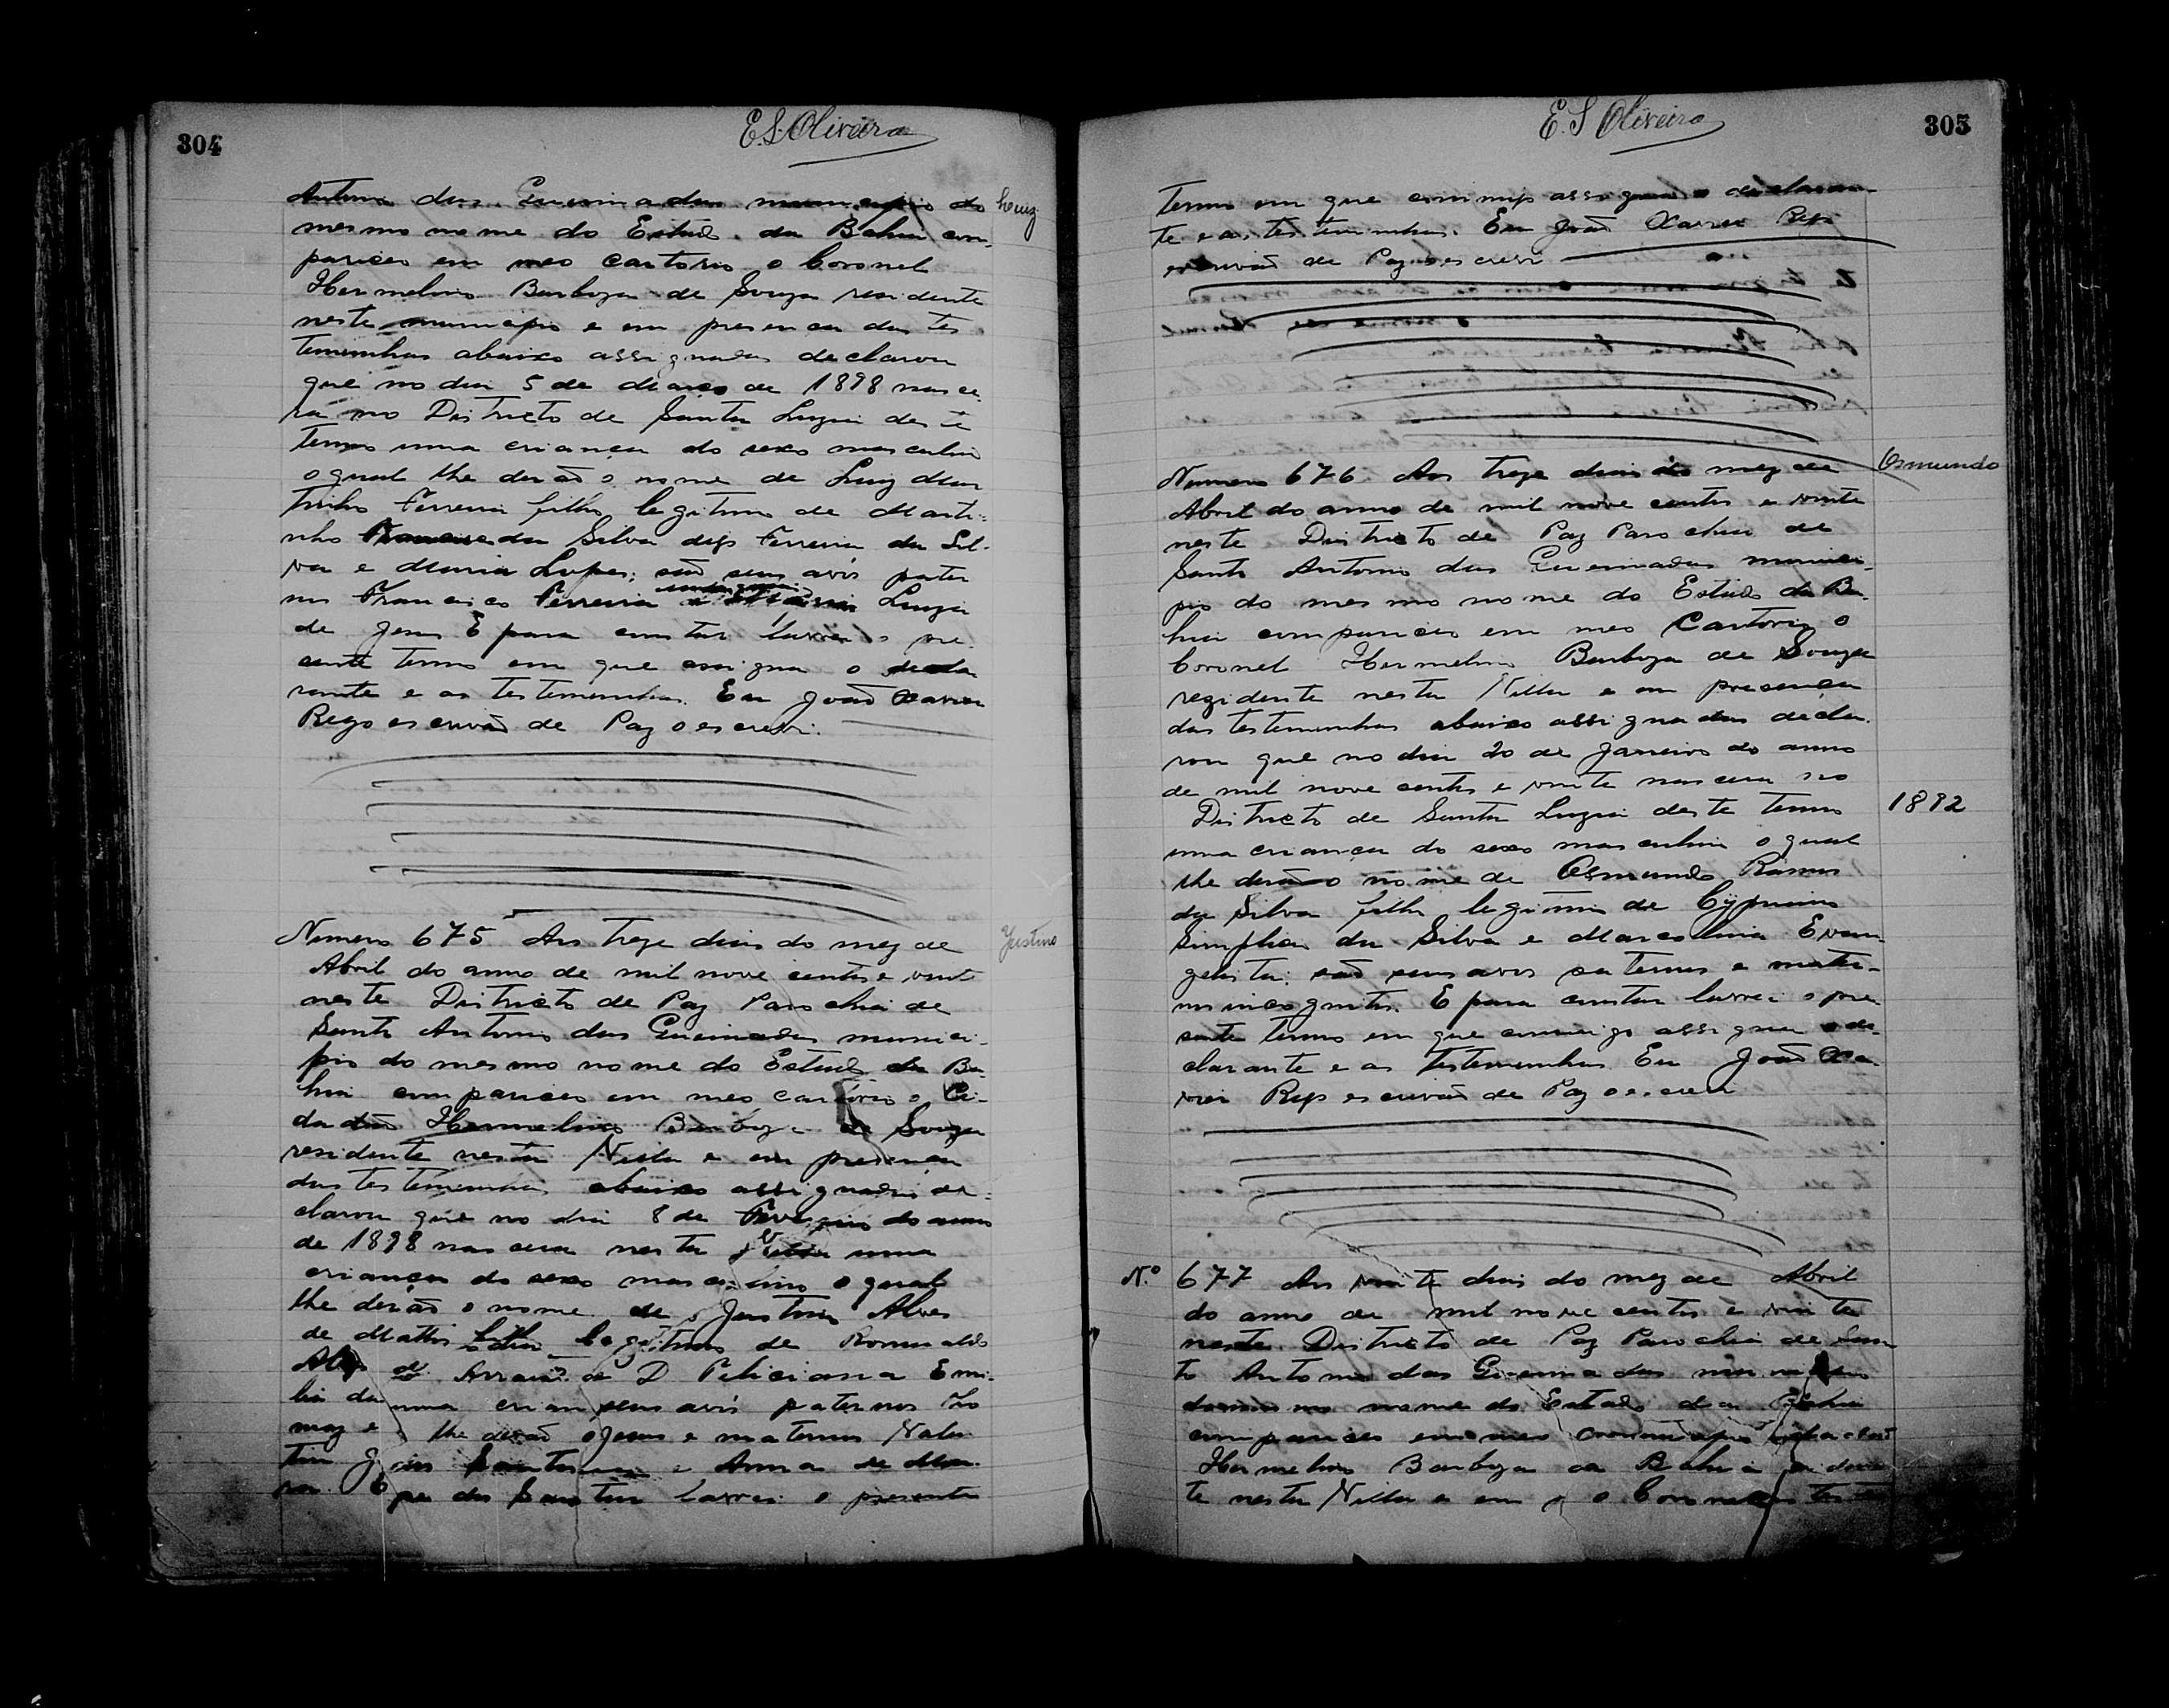 304
E.S. Oliveira
Antonio das Queimadas municipio do
Luiz
mesmo nome do Estado da Bahia com-
pareceo em meo Cartorio o Coronel
Hermelino Barboza de Souza residente
neste municipio e em presença das tes
temunhas abaixo assignadas declarou
que no dia 5 de Março de 1898 nasce
ra no Districto de Santa Luzia deste
termo uma criança do sexo masculin
o qual lhe derão o nome de Luiz Mar
tinho Ferreira filho legitimo de Marti-
nho da Silva digo Ferreira da Sil-
va e Maria Lopes; são seus avós pater
nos Francisco Ferreira Luzia
de Jesus E para constar lavrei o pre-
sente termo em que assigna o decla
rante e as testemunhas. Eu João Xavier
Rego escrivão de Paz o escrevi.
Numero 675 Aos treze dias do mez de
Justino
Abril do anno de mil nove centos e vint
neste Districto de Paz Parochia de
Santo Antonio das Queimadas munici-
pio do mesmo nome do Estado da Ba-
hia compareceo em meo cartorio o Ci-
dadão Hermelino Barboza de Souza
residente nesta Villa e em presença
das testemunhas abaixo assignadas de-
clarou que no dia 8 de Fevereiro do anno
de 1898 nascera nesta Villa uma
criança do sexo masculino o qual
lhe derão o nome de Justino Alves
de Mattos filho legitimo de Romualdo
de D Feliciana Emi-
lia seus avós paternos
lhe derão Jesus e maternos
Anna de
lavrei o presente
E.S Oliveira
305
termo em que commigo assigna o declaran-
te e as testemunhas. Eu João Xavier Rego
escrivão de Paz o escrevi
Numero 676 Aos treze dias do mez de
Osmundo
Abril do anno de mil nove centos e vinte
neste Districto de Paz Parochia de
Santo Antonio das Queimadas munici-
pio do mesmo nome do Estado da Ba-
hia compareceo em meo Cartorio o
Coronel Hermelino Barboza de Souza
rezidente nesta Villa e em presença
das testemunhas abaixo assignadas decla-
rou que no dia 20 de Janeiro do anno
de mil nove centos e vinte nascera no
Districto de Santa Luzia deste termo
1892
uma criança do sexo masculino o qual
lhe derão o nome de Osmundo Ramos
da Silva filho legitimo de Cypriano
Simplicio da Silva e Marcolina Evan-
gelista: são seus avos paternos e mater-
nos incognitos. E para constar lavrei o pre-
sente termo em que commigo assigna o de-
clarante e as testemunhas. Eu João Xa-
vier Rego escrivão de Paz o escrevi
N.º 677 Aos vinte dias do mez de Abril
do anno de mil nove centos e vinte
neste Districto de Paz Parochia de San
to Antonio das Queimadas municipio
nome do Estado da Bahia
compareceo em meo
Hermelino Barboza da Bahia
te nesta Villa e em o Coronel